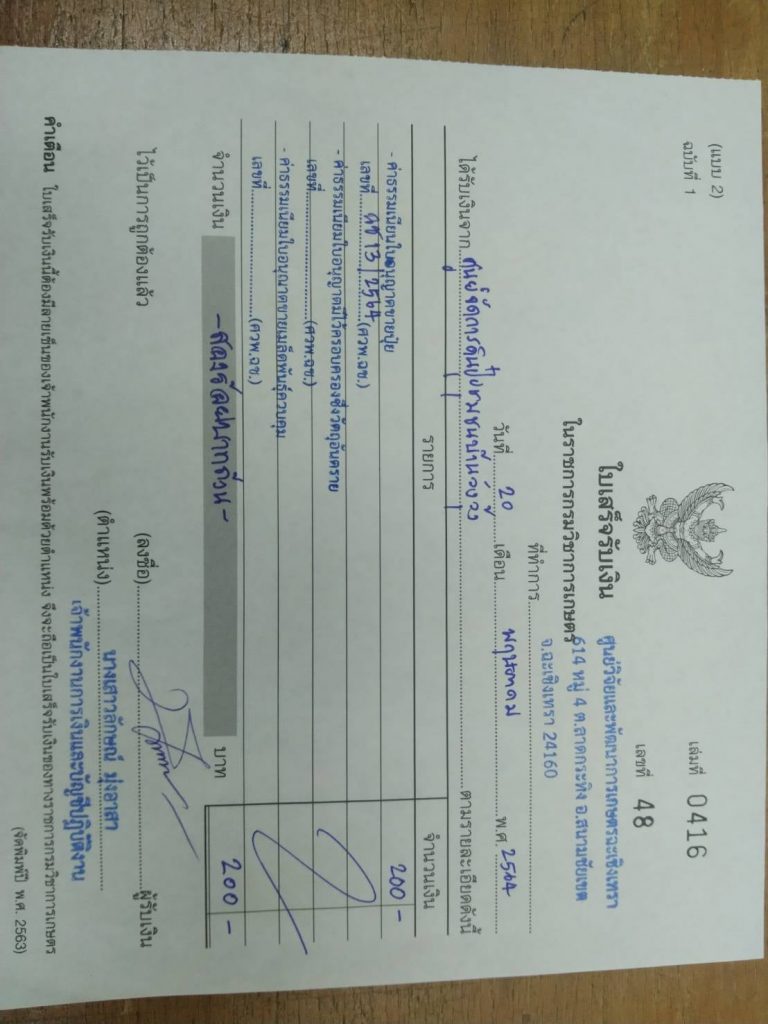 (แบบ 2)
ฉบับที่ 1
เล่มที่ 0416
เลขที่ 48
ใบเสร็จรับเงิน
ในราชการกรมวิชาการเกษตร
ศูนย์วิจัยและพัฒนาการเกษตรฉะเชิงเทรา
614 หมู่ 4 ต.ลาดกระทิง อ.สนามชัยเขต
จ.ฉะเชิงเทรา 24160
ที่ทำการ
วันที่ 20 เดือน พฤษภาคม พ.ศ. 2564
ได้รับเงินจาก ศูนย์จัดการดินปุ๋ยชุมชนบ้าน ตามรายละเอียดดังนี้
รายการ จำนวนเงิน
- ค่าธรรมเนียมใบอนุญาตขายปุ๋ย 200 -
เลขที่ 13/2564 (ศวพ.ฉช.)
- ค่าธรรมเนียมใบอนุญาตมีไว้ครอบครองซึ่งวัตถุอันตราย
เลขที่ (ศวพ.ฉช.)
- ค่าธรรมเนียมใบอนุญาตขายเมล็ดพันธุ์ควบคุม
เลขที่ (ศวพ.ฉช.)
จำนวนเงิน - สองร้อยบาทถ้วน - บาท 200 -
ไว้เป็นการถูกต้องแล้ว
(ลงชื่อ) ผู้รับเงิน
นางเสาวลักษณ์ มุ่งอาสา
(ตำแหน่ง)
เจ้าพนักงานการเงินและบัญชีปฏิบัติงาน
คำเตือน ใบเสร็จรับเงินนี้ต้องมีลายเซ็นของเจ้าพนักงานรับเงินพร้อมด้วยตำแหน่ง จึงจะถือเป็นใบเสร็จรับเงินของทางราชการกรมวิชาการเกษตร
(จัดพิมพ์ปี พ.ศ. 2563)